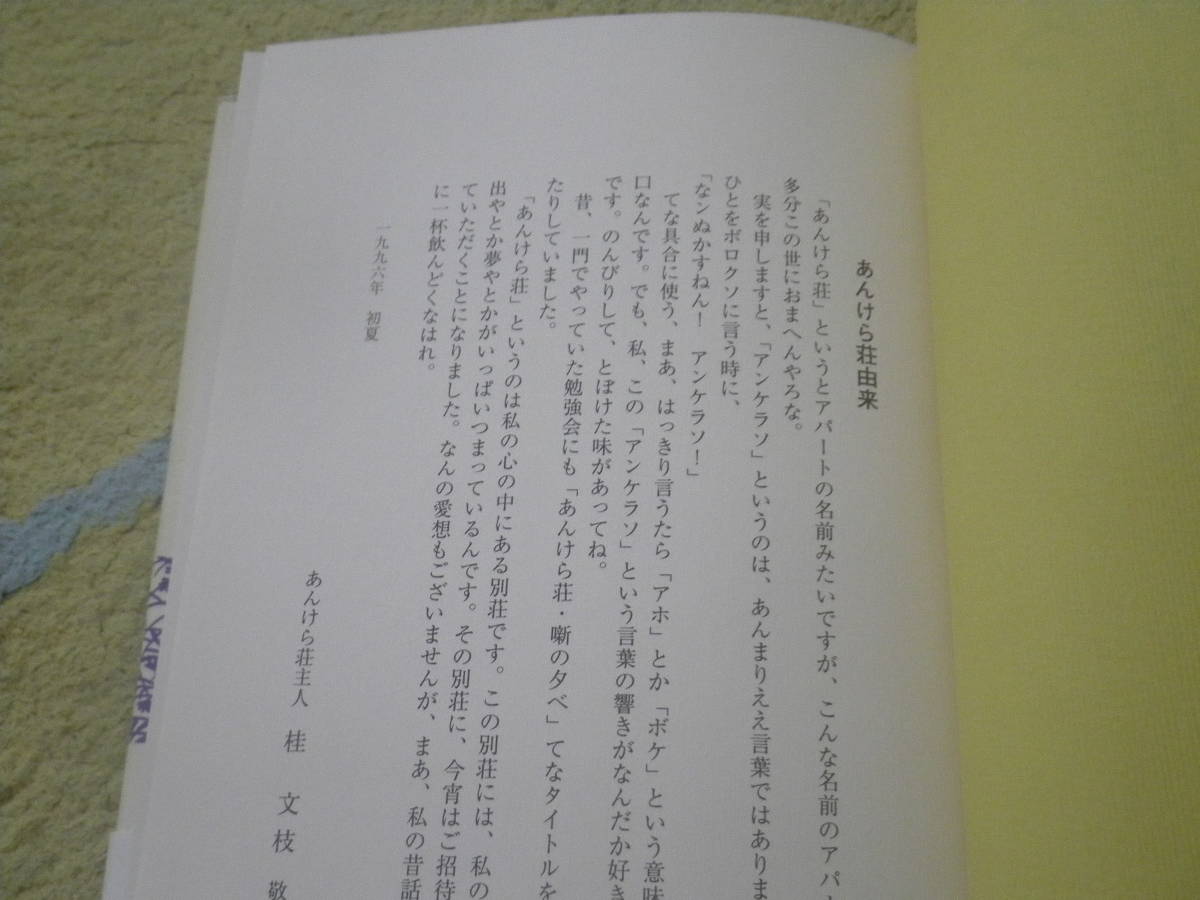 あんけら荘由来
「あんけら荘」というとアパートの名前みたいですが、こんな名前のアパー
多分この世におまへんやろな。
実を申しますと、「アンケラソ」というのは、あんまりええ言葉ではありま
ひとをボロクソに言う時に、
「なンぬかすねん！ アンケラソ！」
てな具合に使う、まあ、はっきり言うたら「アホ」とか「ボケ」という意味
口なんです。でも、私、この「アンケラソ」という言葉の響きがなんだか好き
です。のんびりして、とぼけた味があってね。
昔、一門でやっていた勉強会にも「あんけら荘・噺の夕べ」てなタイトルを
たりしていました。
「あんけら荘」というのは私の心の中にある別荘です。この別荘には、私の
出やとか夢やとかがいっぱいつまっているんです。その別荘に、今宵はご招待
ていただくことになりました。なんの愛想もございませんが、まあ、私の昔話
に一杯飲んどくなはれ。
一九九六年 初夏
あんけら荘主人 桂 文枝 敬